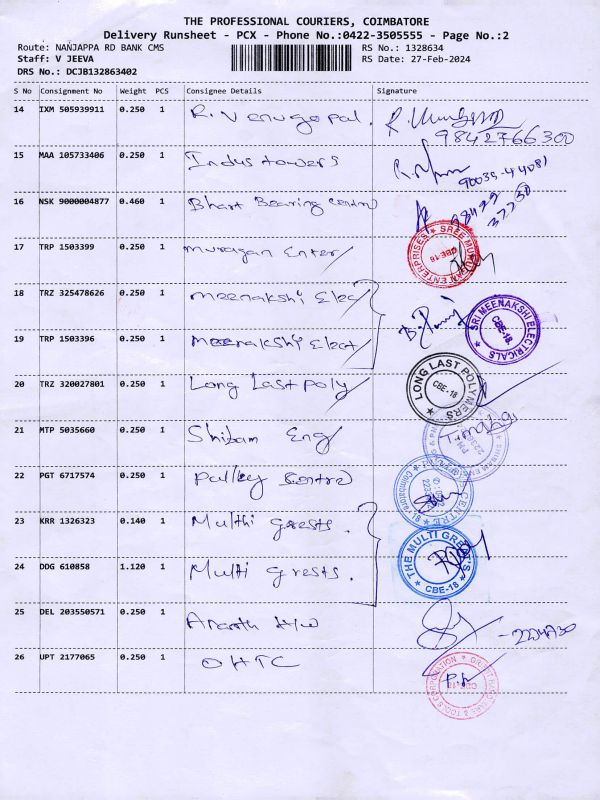 THE PROFESSIONAL COURIERS, COIMBATORE
Delivery Runsheet - PCX - Phone No.:0422-3505555 - Page No.:2
Route: NANJAPPA RD BANK CMS RS No.: 1328634
Staff: V JEEVA RS Date: 27-Feb-2024
DRS No.: DCJB132863402
S No Consignment No Weight PCS Consignee Details Signature
14 IXM 505939911 0.250 1 R. Venugopal.
9842766300
15 MAA 105733406 0.250 1 Indus towers
90035-44081
16 NSK 9000004877 0.460 1 Bhart Bearing centre
98422
37750
17 TRP 1503399 0.250 1 Murugan Enter/
SREE MURUGAN ENTERPRISES CBE-18
18 TRZ 325478626 0.250 1 Meenakshi Elec/
SRI MEENAKSHI ELECTRICALS CBE-18
19 TRP 1503396 0.250 1 Meenakshi Elect/
20 TRZ 320027801 0.250 1 Long Last poly/
LONG LAST POLYMERS CBE-18
21 MTP 5035660 0.250 1 Shibam Eng/
22 PGT 6717574 0.250 1 Pulley Centre
CENTRE
23 KRR 1326323 0.140 1 Multhi grests.
24 DDG 610858 1.120 1 Multi grests.
THE MULTI GREET'S CBE-18
25 DEL 203550571 0.250 1 Ananth H/w
26 UPT 2177065 0.250 1 OHTC
P.R